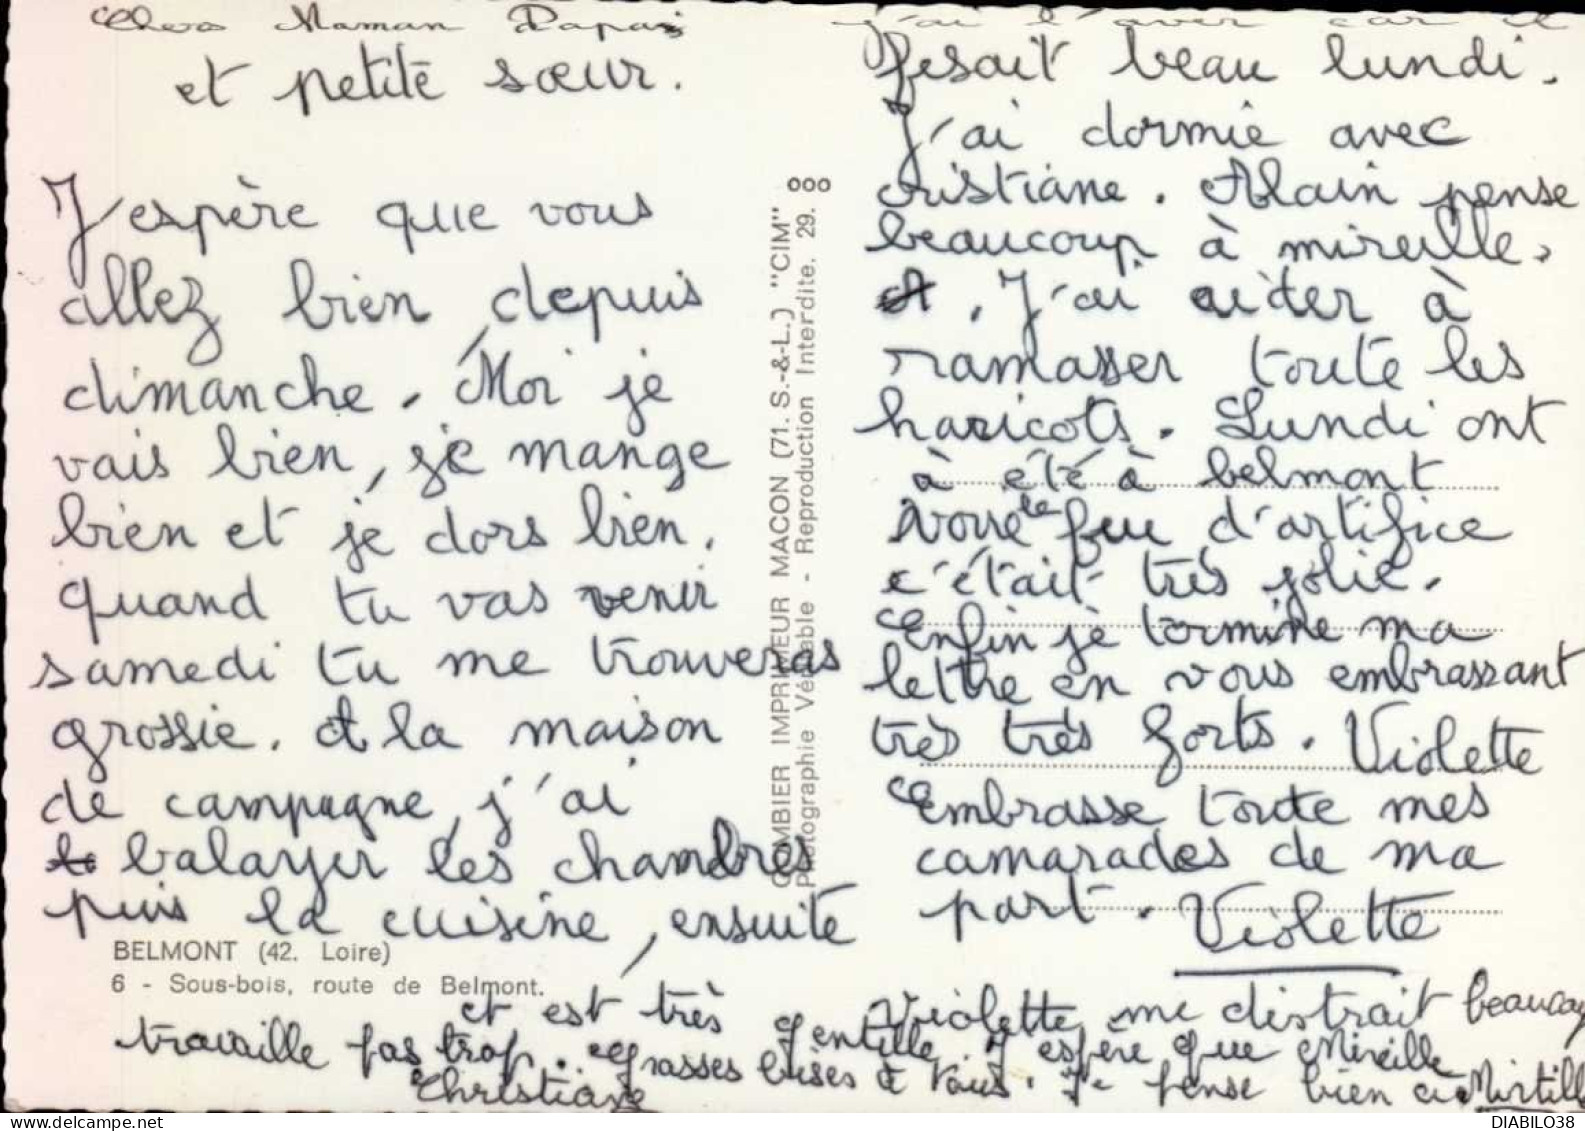 Chers Maman Papa
et petite sœur.
J'espère que vous
allez bien depuis
dimanche. Moi je
vais bien, je mange
bien et je dors bien.
quand tu vas venir
samedi tu me trouveras
grossie. et la maison
de campagne, j'ai
balayer les chambres
puis la cuisine, ensuite
j'ai l'aver car il
fesait beau lundi.
J'ai dormie avec
cristiane. Alain pense
beaucoup à mireille.
. J'ai aider à
ramasser toute les
haricots. Lundi ont
à été à belmont
voire le feu d'artifice
c'était très jolie.
Enfin je termine ma
lettre en vous embrassant
très très forts. Violette
Embrasse toute mes
camarades de ma
part. Violette
Violette me distrait beaucoup
et est très gentille. J'espère que Mireille
travaille pas trop. grasses bises à vous. Je pense bien à Mirtille
Christiane
COMBIER IMPRIMEUR MACON (71. S.-&-L.) "CIM"
Photographie Véritable - Reproduction Interdite. 29.
BELMONT (42. Loire)
6 - Sous-bois, route de Belmont.
DIABILO38